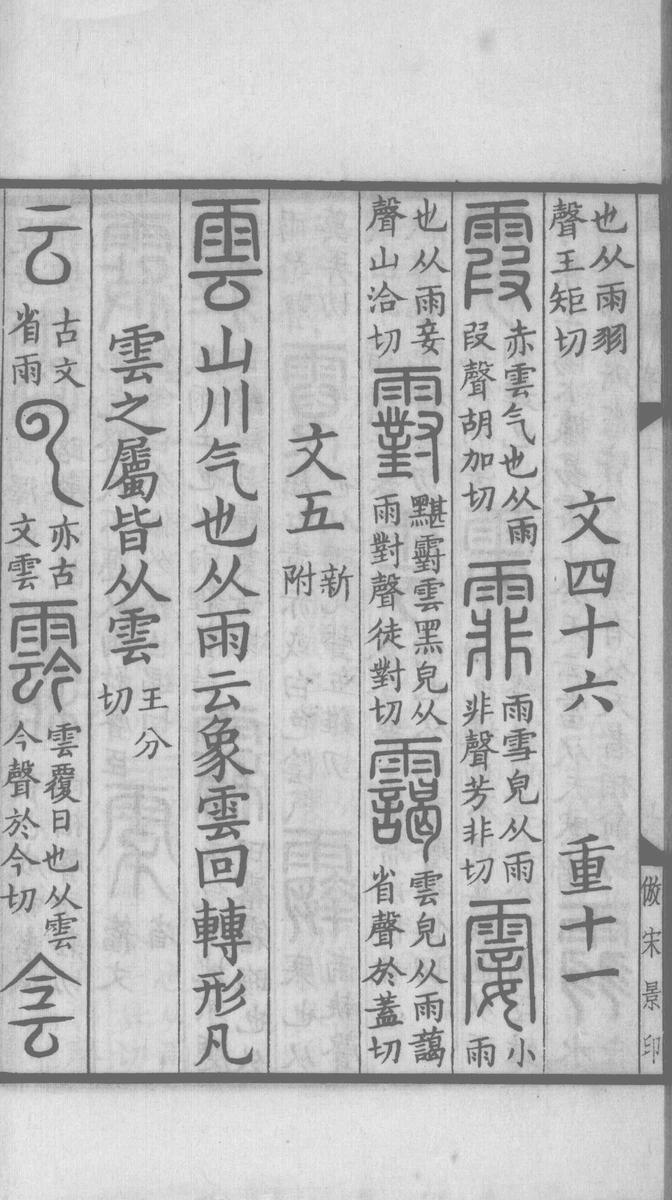 也从雨羽
聲王矩切
文四十六 重十一
霞 赤雲气也从雨
叚聲胡加切
霏 雨雪皃从雨
非聲芳非切
霎 小
雨
也从雨妾
聲山洽切
䨴 黮䨴雲黑皃从
雨對聲徒對切
靄 雲皃从雨藹
省聲於蓋切
文五 新
附
雲 山川气也从雨云象雲回轉形凡
雲之屬皆从雲 王分
切
云 古文
省雨
亦古
文雲
霒 雲覆日也从雲
今聲於今切
侌
倣宋景印